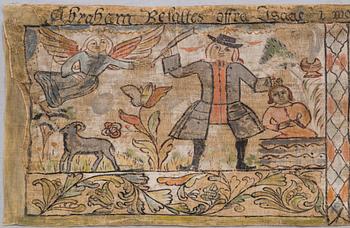 Abraham Befalles offra Isaac i mo